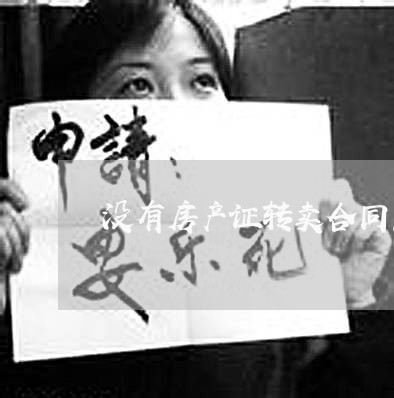 申請：
没有房产证转卖合同
安乐死